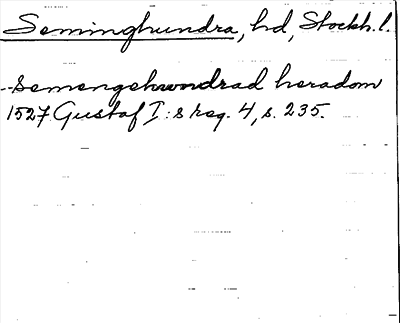 Seminghundra, hd, Stockh. l.
Semengehwndrad heradom
1527 Gustaf I:s reg. 4, s. 235.